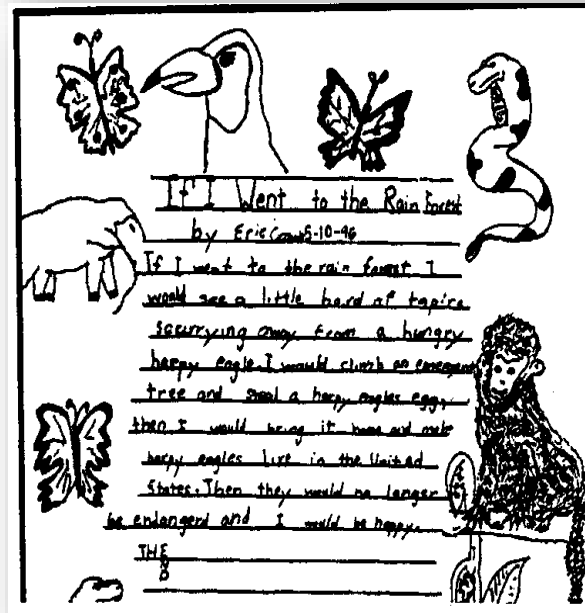 If I Went to the Rain Forest
by Eric 5-10-96
If I went to the rain forest I
would see a little herd of tapirs
scurrying away from a hungry
harpy eagle. I would climb an emergent
tree and steal a harpy eagles egg,
then I would bring it home and make
harpy eagles live in the United
States. Then they would no longer
be endangerd and I would be happy.
THE